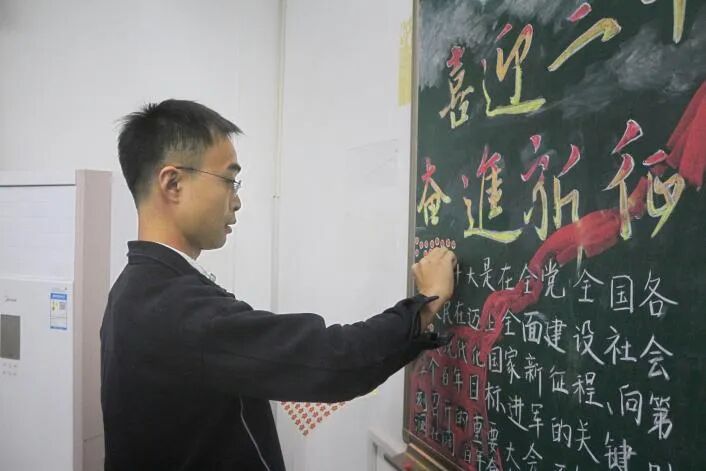 喜迎二
奋進新征
大是在全党全国各
在迈上全面建设社会
现代化国家新征程、向第
个百年目标进军的关键
召开的重要大会